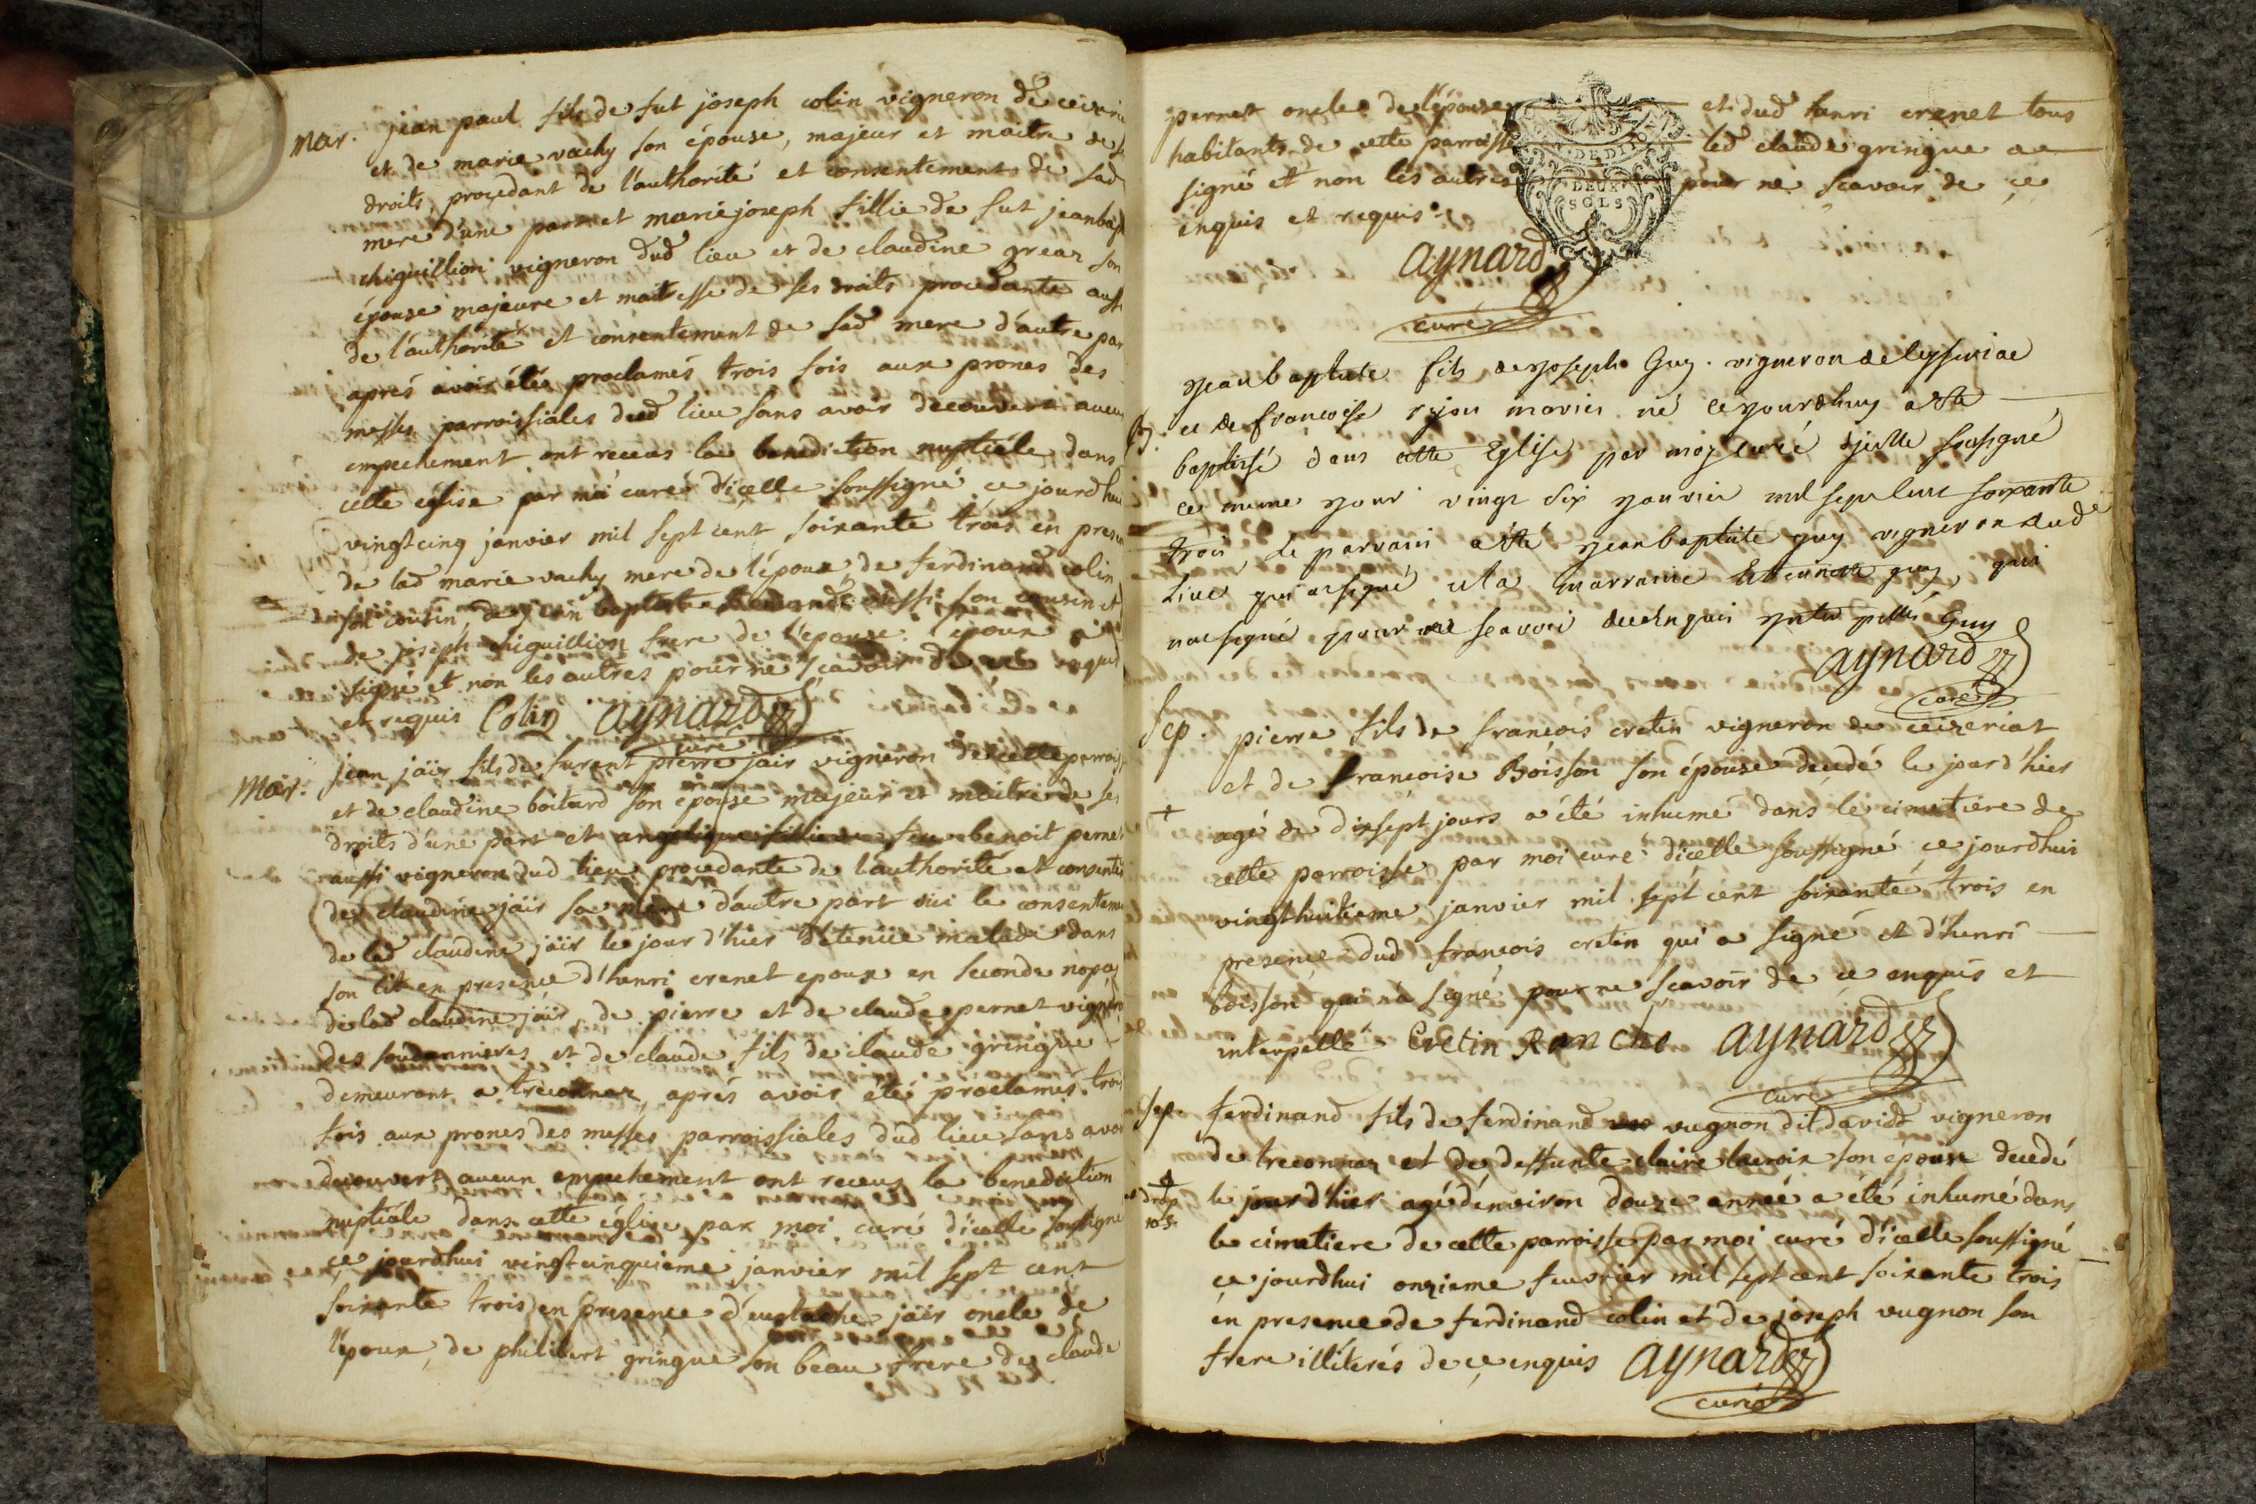 mar. jean paul fils de fut joseph colin vigneron de ceizeria
et de marie vachy son épouse, majeur et maitre de
droits, procedant de l'authorité et consentement de sad
mere d'une part et marie joseph fillie de fut jeanbap
chiguillion vigneron dud lieu et de claudine greaz son
épouse majeure et maitresse de ses droits procedante aussi
de l'authorité et consentement de sad mere d'autre par
aprés avoir étés proclamés trois fois aux prones des
messes parroissiales dud lieu sans avoir decouvert aucun
empechement ont recues la benediction nuptiéle dans
cette église par moi curé d'icelle soussigné ce jourdhui
vingtcinq janvier mil sept cent soixante trois en presen
de lad marie vachy mere de l'époux, de ferdinand colin
son cousin, de jean baptiste aussi son cousin et
de joseph chiguillion frere de l'epouse. epoux a
signé et non les autres pour ne scavoir de ce enquis
et requis Colin aynard
curé
mar: jean jäir fils de furent pierre jäir vigneron de cette parroiss
et de claudine boitard son épouse majeur et maitre de ses
droits d'une part et angelique fillie de feu benoit pernet
aussi vigneron dud lieu procedante de l'authorité et consente
de claudine jäir sa mere d'autre part oüi le consenteme
de lad claudine jäir le jour d'hier detenüe malade dans
son lit en presence d'henri crenet epoux en seconde nopce
de lad claudine jäir, de pierre et de claude pernet vigne
des soudannieres et de claude fils de claude gringue
demeurant a treconnaz, aprés avoir été proclamés trois
fois aux prones des messes parroissiales dud lieu sans avoir
decouvert aucun empechement ont receus la benediction
nuptiéle dans cette église par moi curé d'icelle soussigné
ce jourdhui vingtcinquieme janvier mil sept cent
soixante trois en presence d'eustache jäir oncle de
l'époux, de philibert gringue son beau frere de claude
pernet oncle de l'épouse et dud henri crenet tous
habitants de cette parroisse led claude gringue a
signé et non les autres pour ne scavoir de ce
enquis et requis.
DEUX
SOLS
aynard
curé
B. Jean baptiste fils de Joseph Guy vigneron de
et de francoise mariés né ce jourdhuy a esté
baptisé dans cette Eglise par moy curé d'jcelle sousigné
ce meme jour vingt six janvier mil sept cent soixante
trois, le parrain a esté Jean baptiste guy vigneron dud
lieu qui a signé et la marraine Estiennette guy, qui
na signé pour ne scavoir de ce enquis Guy
aynard
curé
Sep. pierre fils de francois cretin vigneron de ceizeriat
et de francoise Boisson son épouse decedé le jour d'hier
agé de dixsept jours a été inhumé dans le cimetiere de
cette parroisse par moi curé d'icelle soussigné ce jourdhui
vingthuitieme janvier mil sept cent soixante trois en
presence dud francois cretin qui a signé et d'henri
boisson qui n'a signé pour ne scavoir de ce enquis et
interpellé Cretin Ran Cho aynard
curé
Sep. ferdinand fils de ferdinand vugnon dit david vigneron
de treconnaz et de deffunte claire lacroix son epouse decedé
le jour d'hier agé d'environ douze année a été inhumé dans
le cimetiere de cette parroisse par moi curé d'icelle soussigné
ce jourdhui onzieme feuvrier mil sept cent soixante trois
en presence de ferdinand colin et de joseph vugnon son
frere illiterés de ce enquis aynard
curé